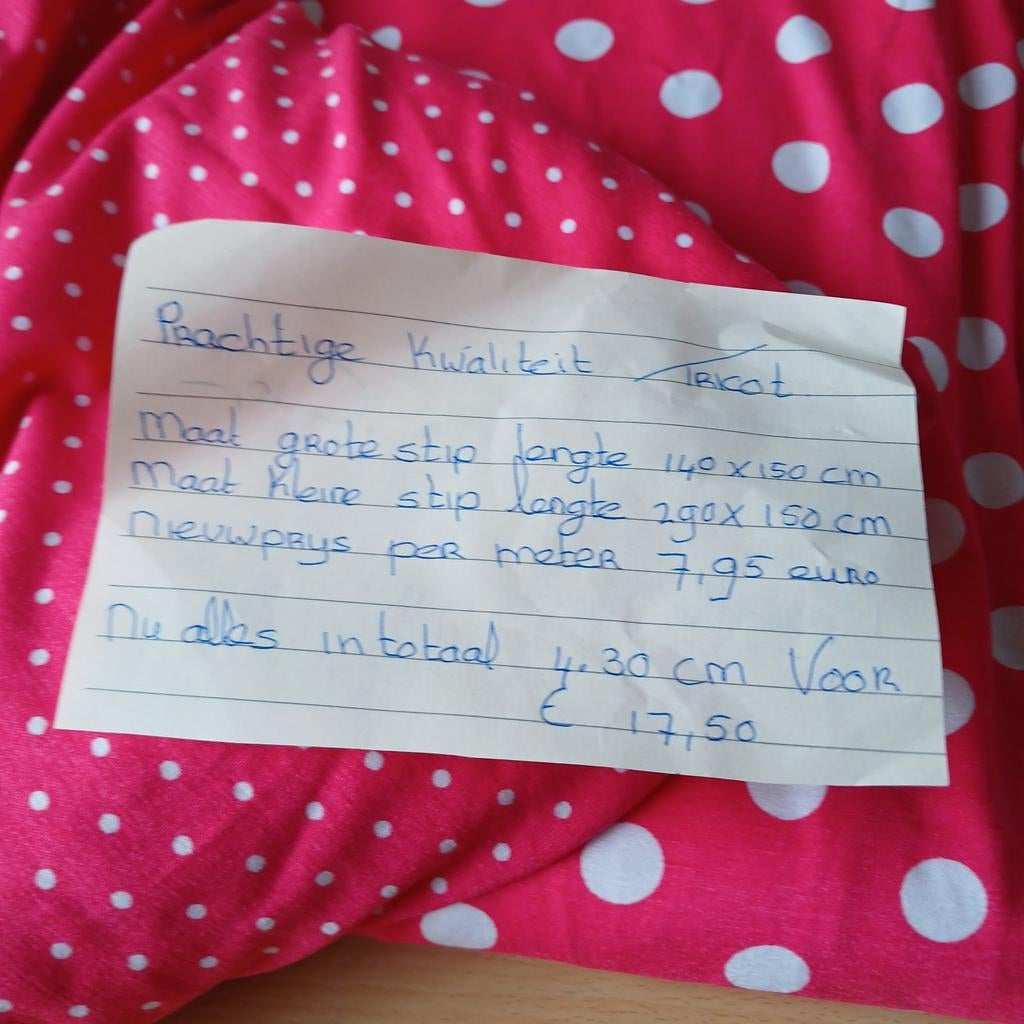 Prachtige kwaliteit Tricot
Maat grote stip lengte 140 x 150 cm
Maat kleine stip lengte 290 x 150 cm
Nieuwprys per meter 7,95 euro
Nu alles in totaal 4.30 cm Voor
€ 17,50